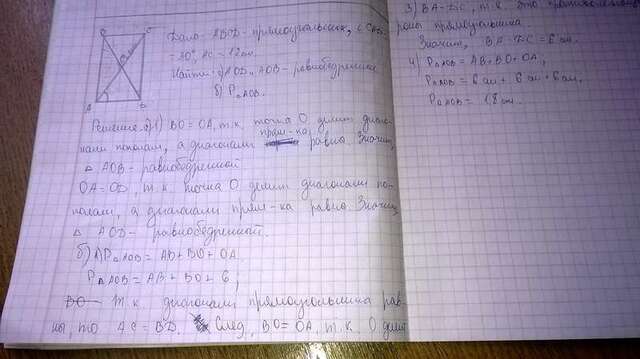 Дано: ABCD - прямоугольник,
= 30°, AC = 12 см.
Найти: а) AOD и AOB - равнобедренные
б) P△AOB.
A
Решение: а) 1) BO = OA, т.к. точка O делит диаго-
нали пополам, а диагонали прям-ка равны. Значит,
△ AOB - равнобедренный
OA = OD, т.к. точка O делит диагонали по-
полам, а диагонали прям-ка равны. Значит,
△ AOD - равнобедренный.
б) 1) P△AOB = AB + BO + OA
P△AOB = AB + BO + 6;
т.к. диагонали прямоугольника рав-
ны, то AC = BD. След, BO = OA, т.к. O делит
3) BA = DC, т.к. это
роны прямоугольника
Значит, BA = DC = 6 см.
4) P△AOB = AB + BO + OA,
P△AOB = 6 см + 6 см + 6 см,
P△AOB = 18 см.